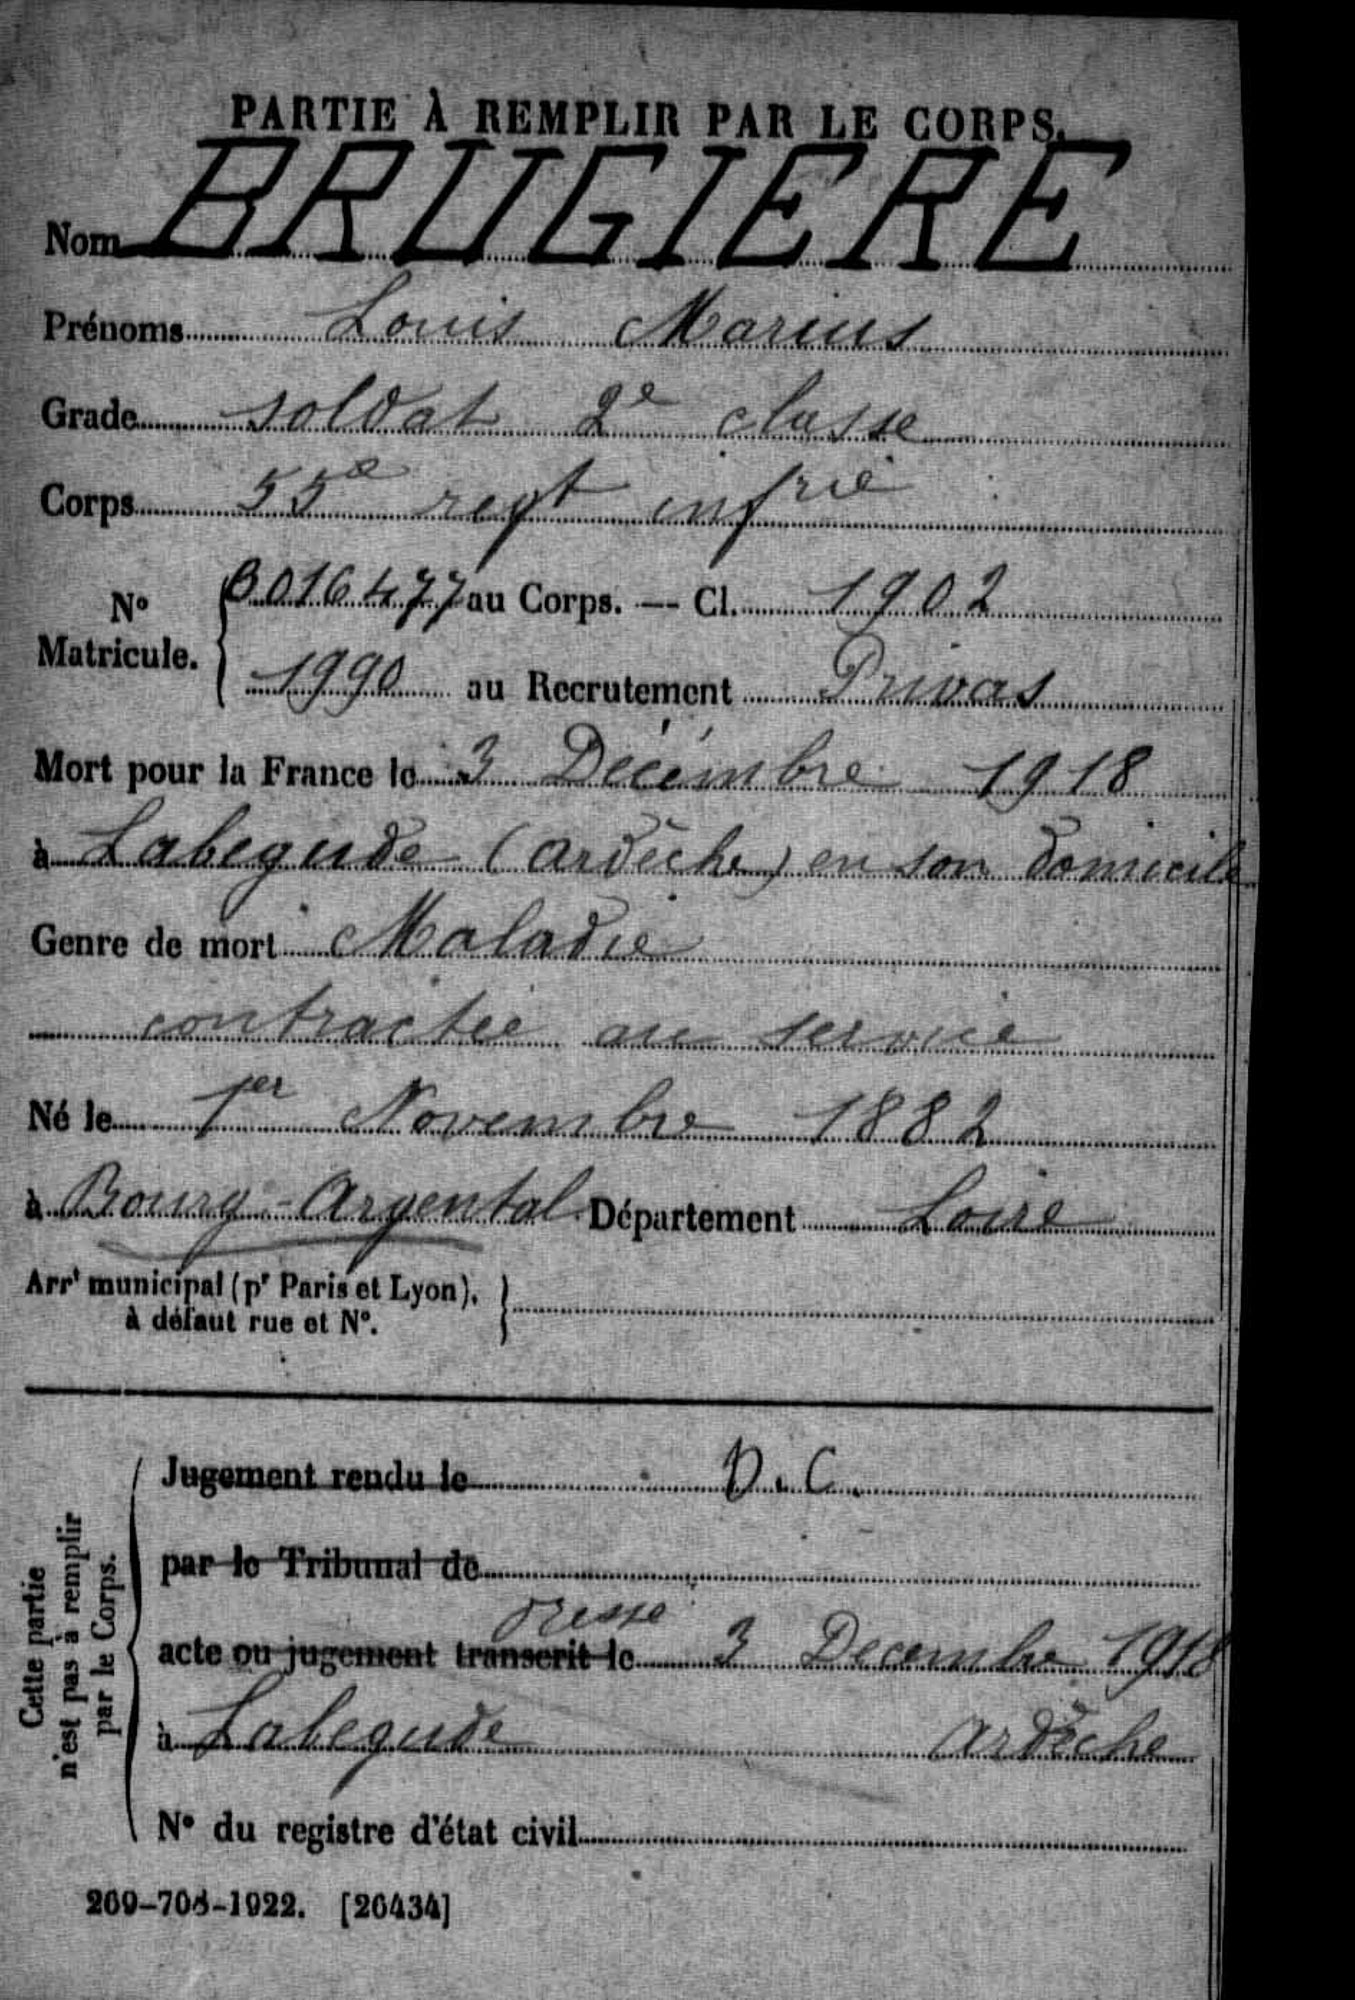 PARTIE À REMPLIR PAR LE CORPS.
Nom BRUGIERE
Prénoms Louis Marius
Grade soldat 2e classe
Corps 55e regt infrie
N° Matricule. { 3016477 au Corps. — Cl. 1902
1990 au Recrutement Privas
Mort pour la France le 3 Décémbre 1918
à Labegude (Ardèche) en son domicile
Genre de mort Maladie
contractée au service
Né le 1er Novembre 1882
à Bourg-Argental Département Loire
Arrt municipal (pr Paris et Lyon),
à défaut rue et N°.
Cette partie
n'est pas à remplir
par le Corps.
Jugement rendu le D.C.
par le Tribunal de
dresse
acte ou jugement transcrit le 3 Decembre 1918
à Labegude Ardèche
N° du registre d'état civil
269-708-1922. [26434]